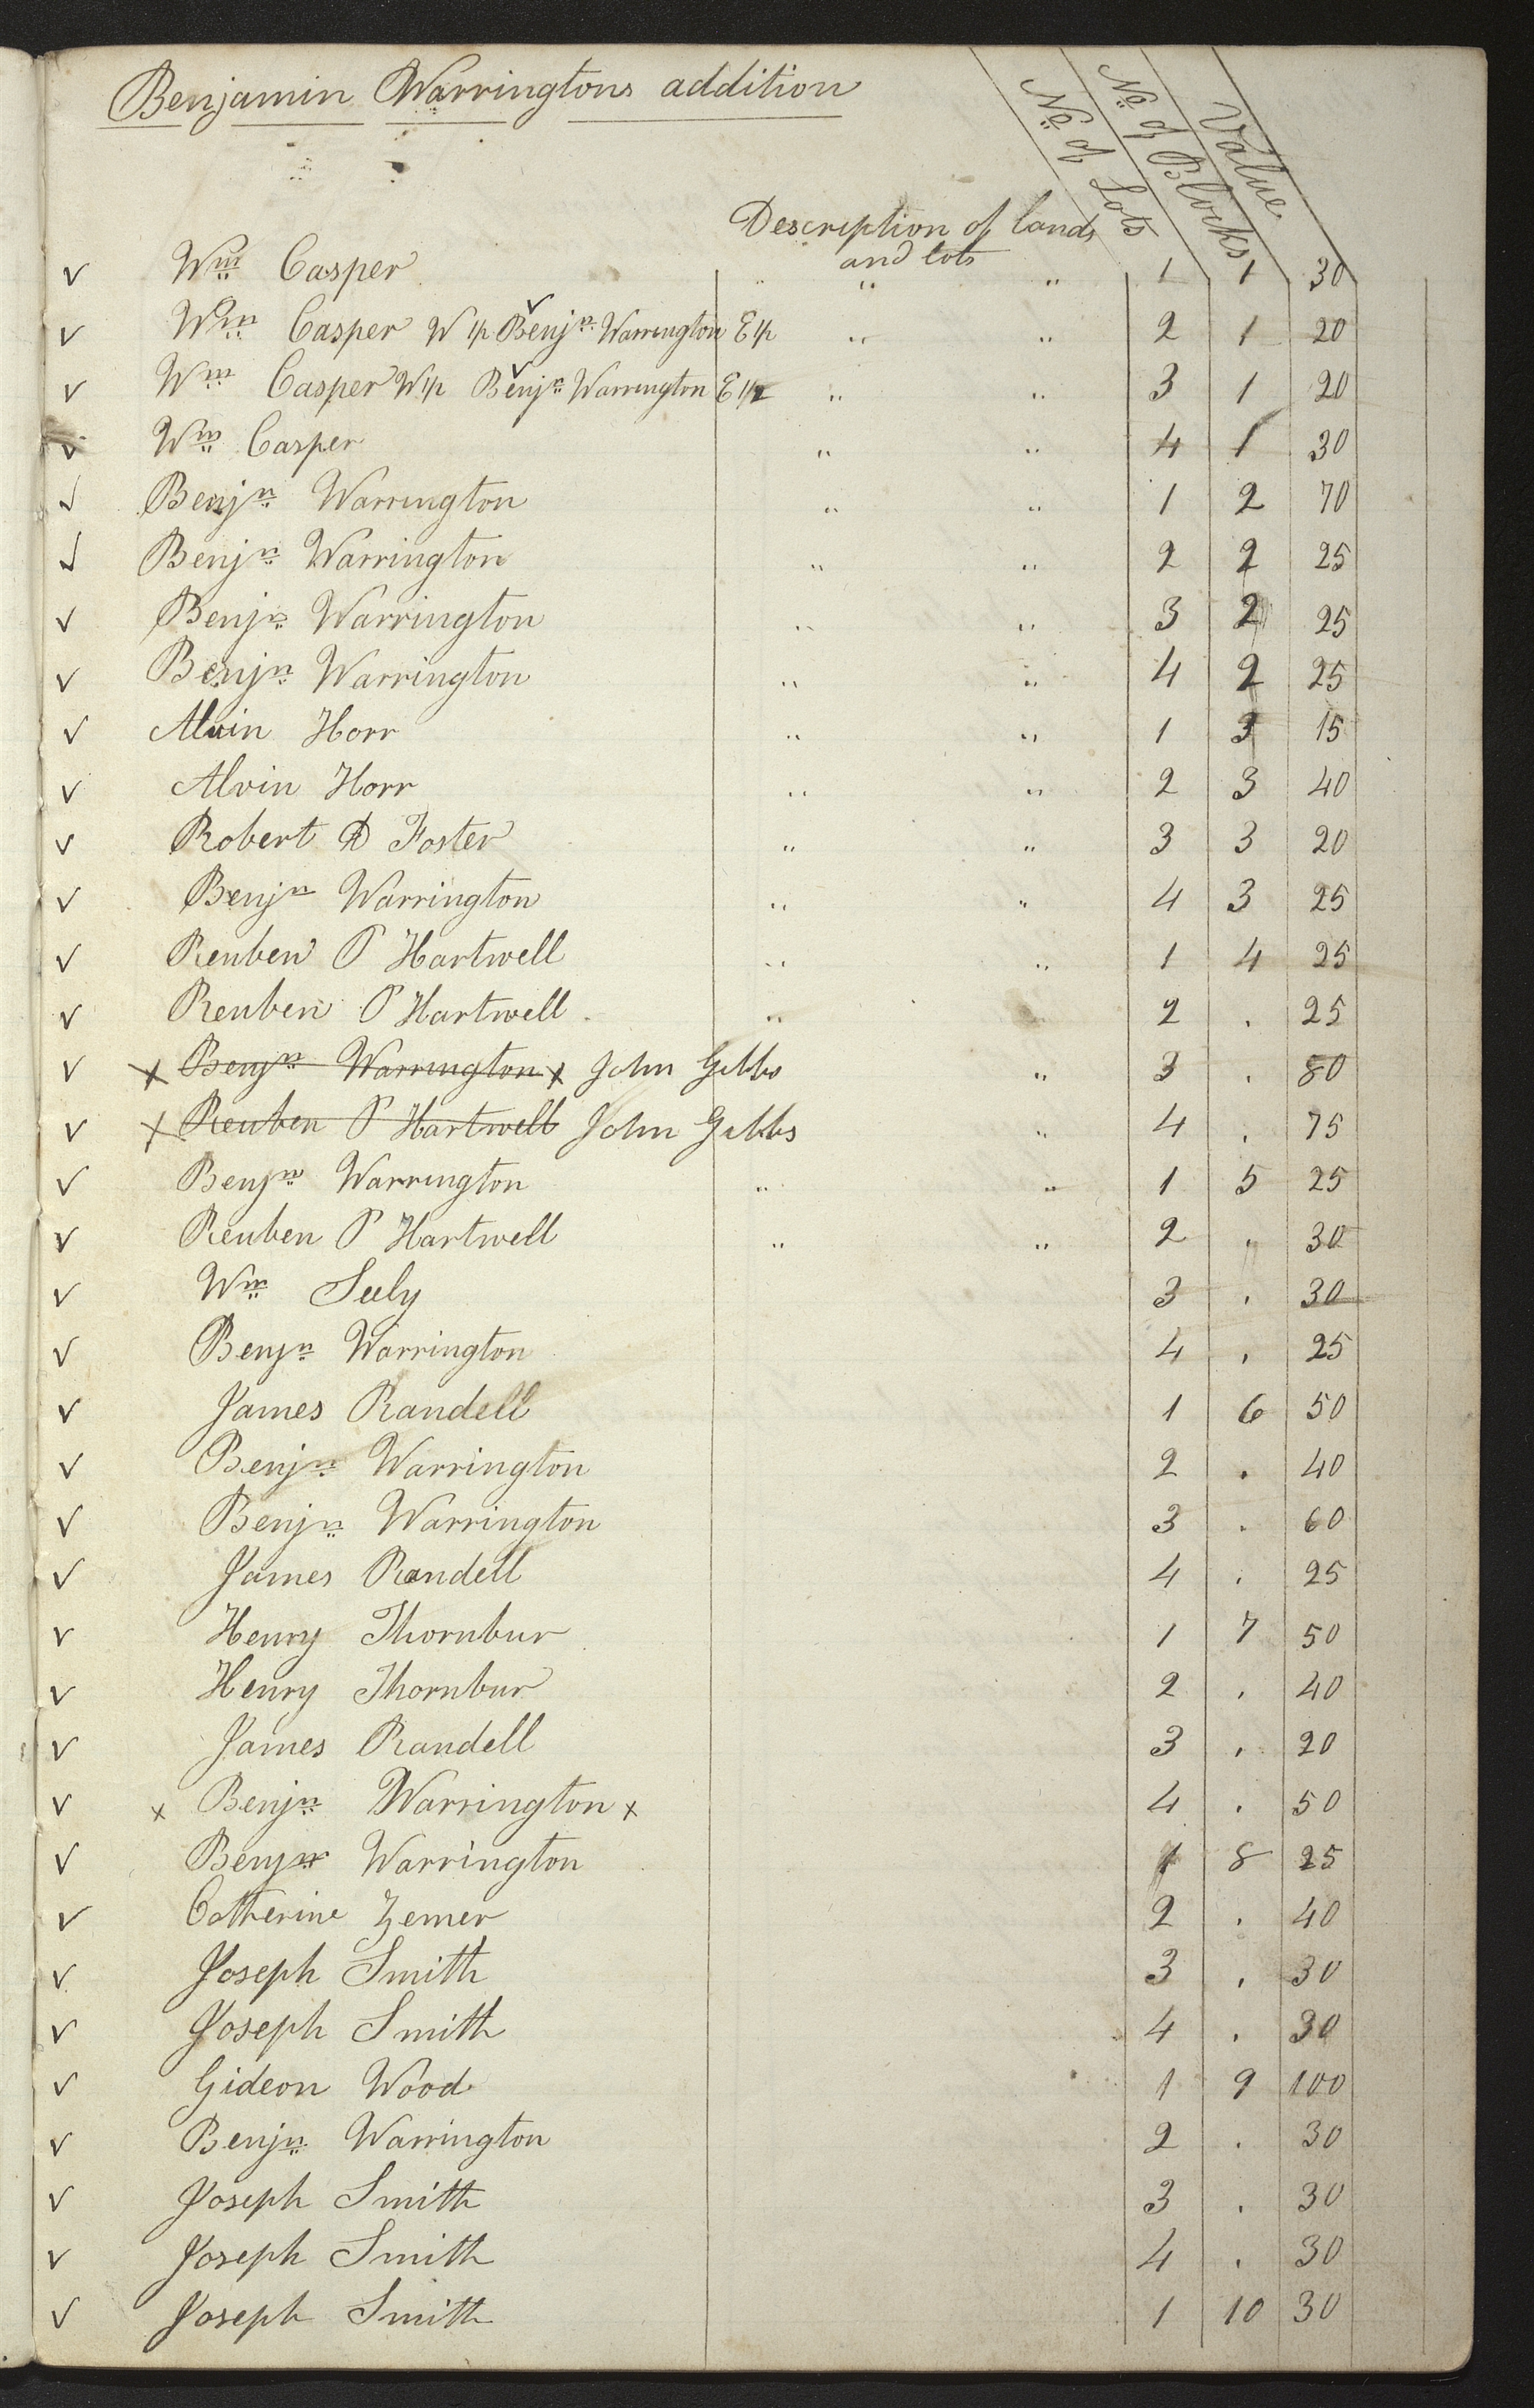 Benjamin Warringtons addition
No of Lots
No of Blocks
Value
Description of lands
and lots
√ Wm Casper " " " 1 1 30
√ Wm Casper W 1/2 √ Benjn Warrington E 1/2 " " 2 1 20
√ Wm Casper W 1/2 √ Benjn Warrington E 1/2 " " 3 1 20
√ Wm Casper " " 4 1 30
√ Benjn Warrington " " 1 2 70
√ Benjn Warrington " " 2 2 25
√ Benjn Warrington " " 3 2 25
√ Benjn Warrington " " 4 2 25
√ Alvin Horr " " 1 3 15
√ Alvin Horr " " 2 3 40
√ Robert D Foster " " 3 3 20
√ Benjn Warrington " " 4 3 25
√ Reuben P Hartwell " " 1 4 25
√ Reuben P Hartwell " " 2 . 25
√ x Benjn Warrington x John Gibbs " 3 . 80
√ x Reuben P Hartwell John Gibbs " 4 . 75
√ Benjn Warrington " " 1 5 25
√ Reuben P Hartwell " " 2 . 30
√ Wm Sely 3 . 30
√ Benjn Warrington 4 . 25
√ James Randell 1 6 50
√ Benjn Warrington 2 . 40
√ Benjn Warrington 3 . 60
√ James Randell 4 . 25
√ Henry Thornbur 1 7 50
√ Henry Thornbur 2 . 40
√ James Randell 3 . 20
√ x Benjn Warrington x 4 . 50
√ Benjn Warrington 1 8 25
√ Catherine Zemer 2 . 40
√ Joseph Smith 3 . 30
√ Joseph Smith 4 . 30
√ Gideon Wood 1 9 100
√ Benjn Warrington 2 . 30
√ Joseph Smith 3 . 30
√ Joseph Smith 4 . 30
√ Joseph Smith 1 10 30